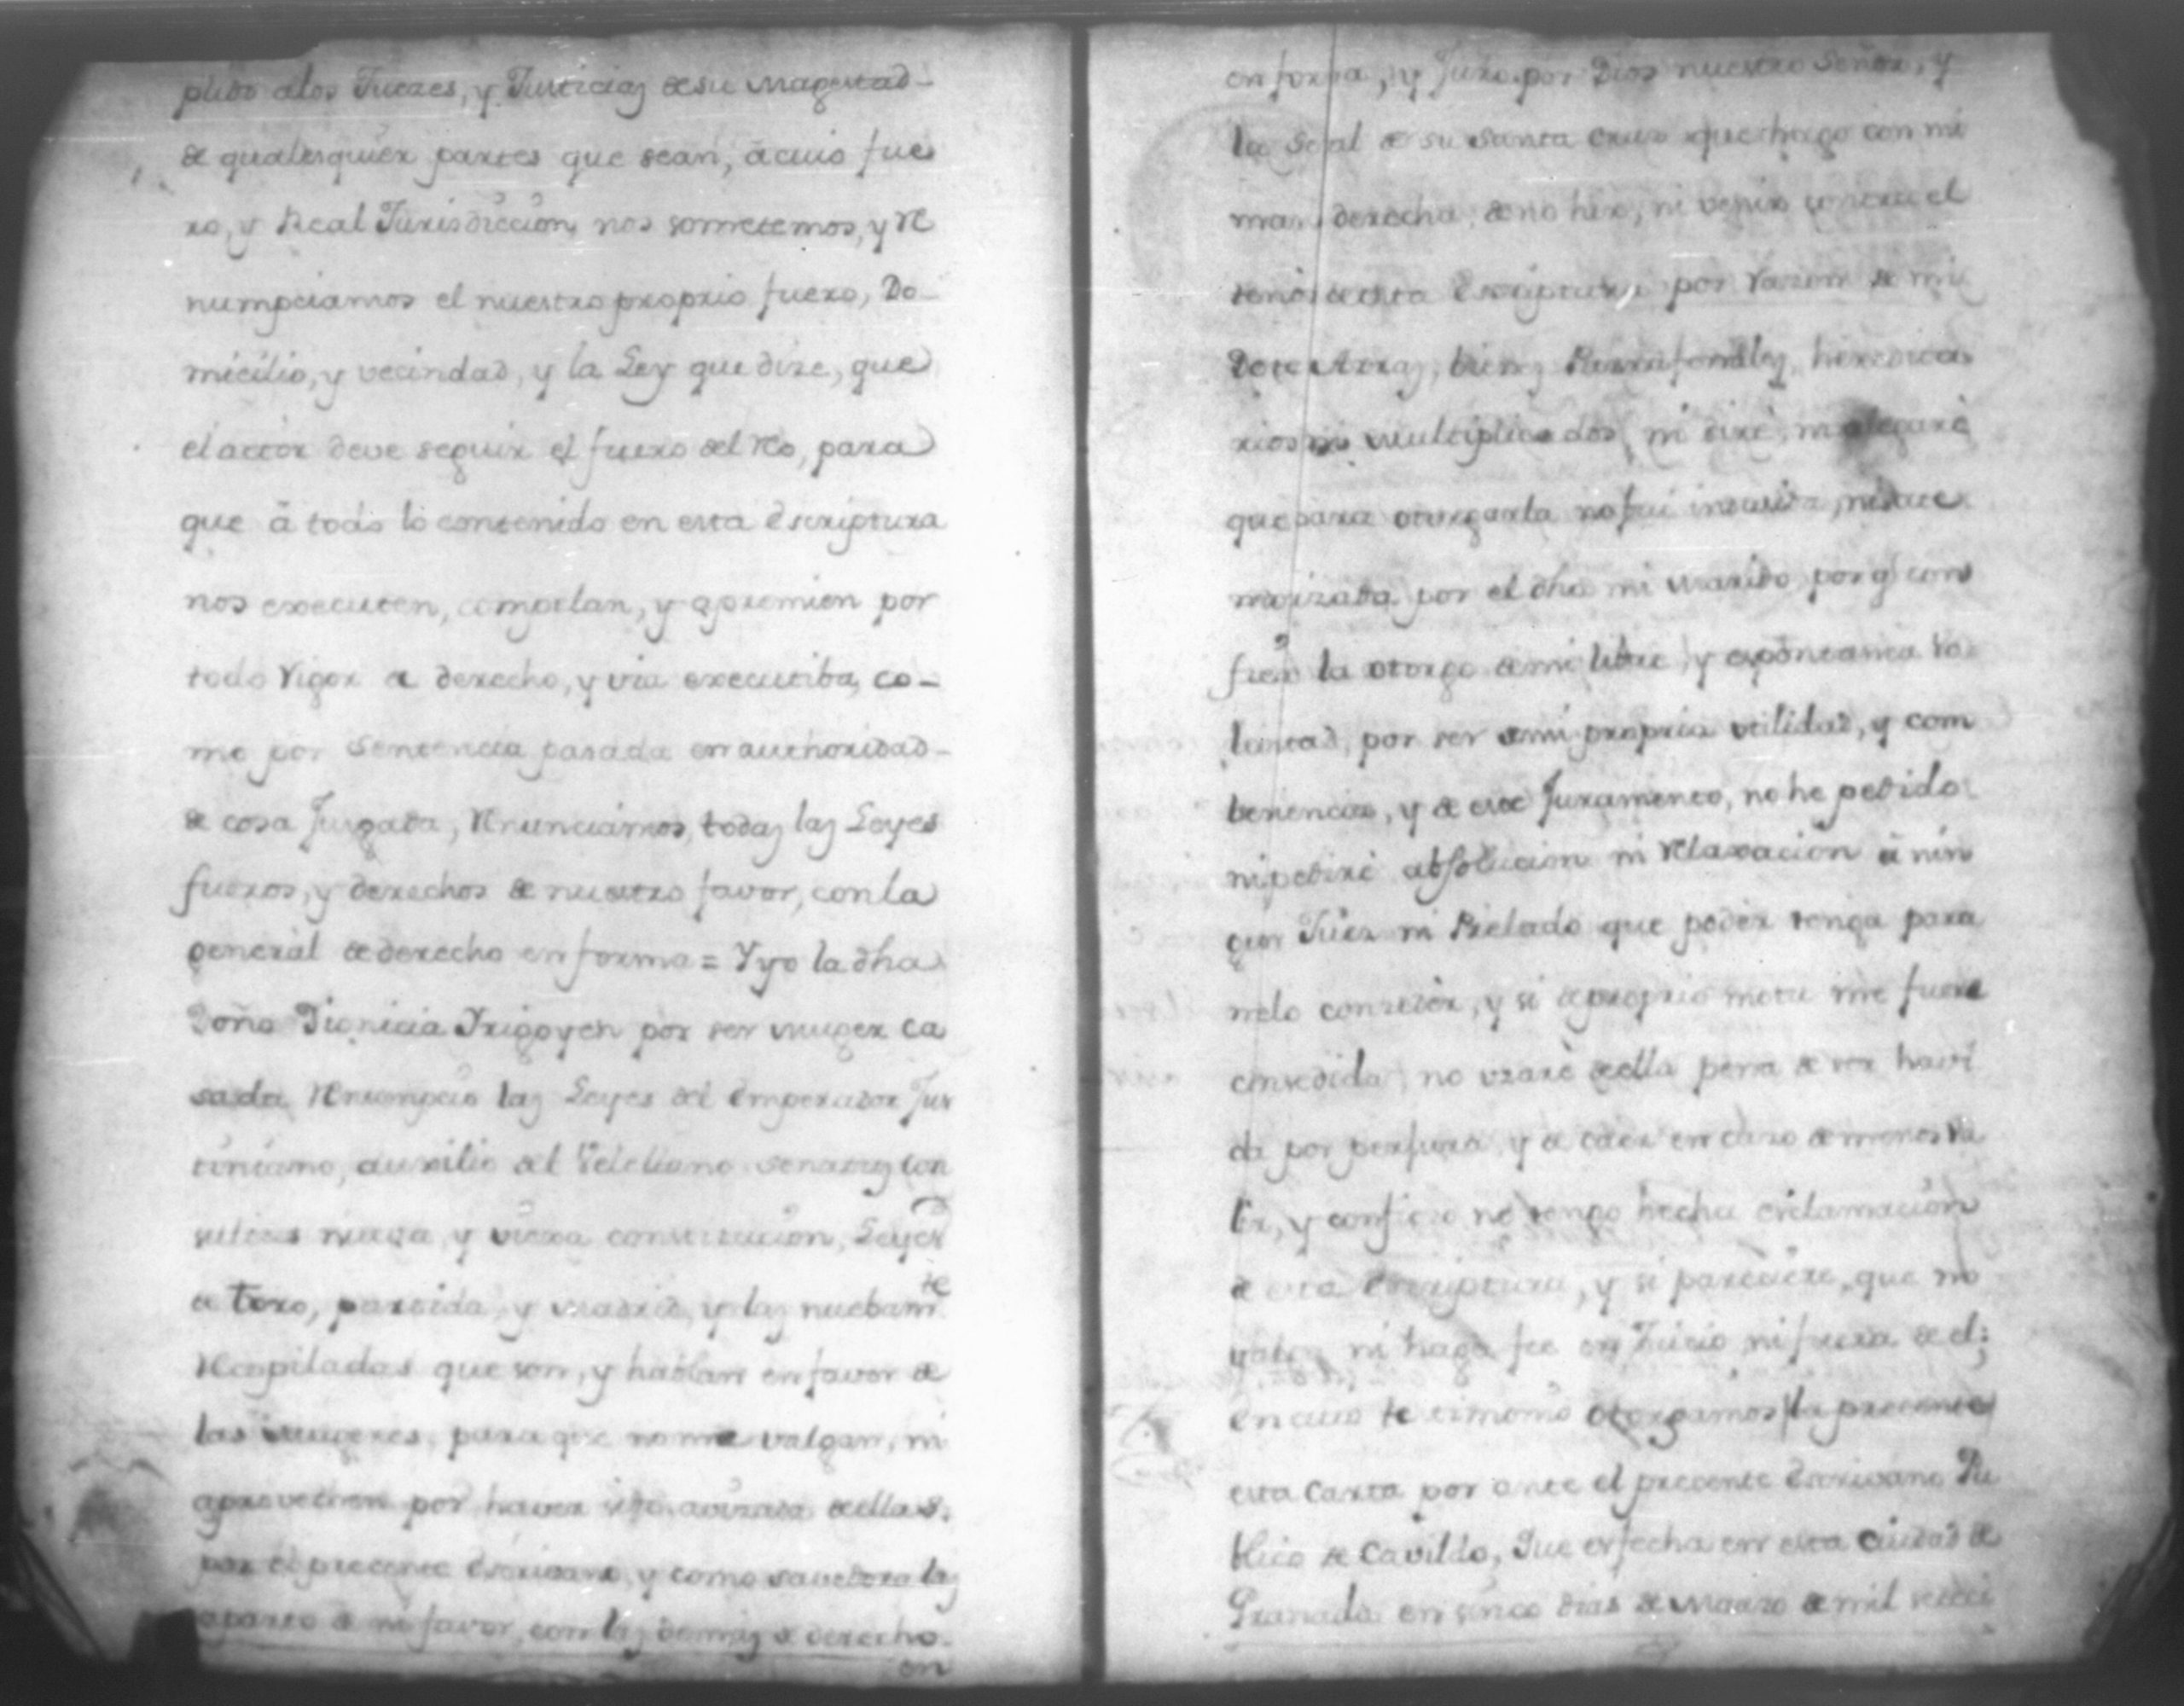 plido alos Juezes, y Justicias de su Magestad-
de qualesquier partes que sean, â cuio fue
ro, y Real Jurisdiccion nos sometemos, y re
numpciamos el nuestro proprio fuero, Do-
micilio, y vecindad, y la Ley que dize, que
el actor deve seguir el fuero del reo, para
que â todo lo contenido en esta Escriptura
nos executen, compelan, y apremien por
todo rigor de derecho, y via executiba, co-
mo por Sentencia pasada en authoridad-
de cosa Juzgada, renunciamos, todas las Leyes
fueros, y derechos de nuestro favor, con la
general de derecho en forma = Y yo la dha
Doña Dionicia Yrigoyen por ser muger ca
sada renumpcio las Leyes del Emperador Jus
tiniano, auxilio del Veleliano senatus con
sultus nueva y vieja constitucion, Leyes
de Toro, partida, y Madrid, y las nuebamte
recopiladas que son, y hablan en favor de
las mugeres, para que no me valgan, ni
aprovechen por haver sido avizada dellas.
por el precente Escrivano, y como savedora las
aparto de mi favor, con las demas de derecho.
en
en forma, y Juro por Dios nuestro Señor, y
la señal de su Santa cruz que hago con mi
mano derecha, de no hir, ni venir contra el
tenor de esta Escriptura por razon de mi
Dote Arras, bienes Parrafernales, heredita
rios ni multiplicados, ni diré, ni alegaré
que para otorgarla no fui inducida, ni ate
morizada por el dho mi marido, por q con
fieso la otorgo de mi libre, y espontanea vo
luntad, por ser de mi propria utilidad, y com
beniencia, y de este Juramento, no he pedido
ni pediré absolucion ni relaxacion â nin
gun Juez ni Prelado que poder tenga para
melo conceder, y si de proprio motu me fuere
consedida, no uzaré de ella pena de ser havi
da por perjura, y de caer en caso de menos va
ler, y confieso no tengo hecha exclamacion
de esta Escriptura, y si pareciere, que no
valga ni haga fee en Juicio ni fuera de el;
En cuio testimonio otorgamos la precente
esta Carta por ante el precente Escrivano Pu
blico de Cavildo, Que es fecha en esta Ciudad de
Granada en sinco dias de Marzo de mil seteci